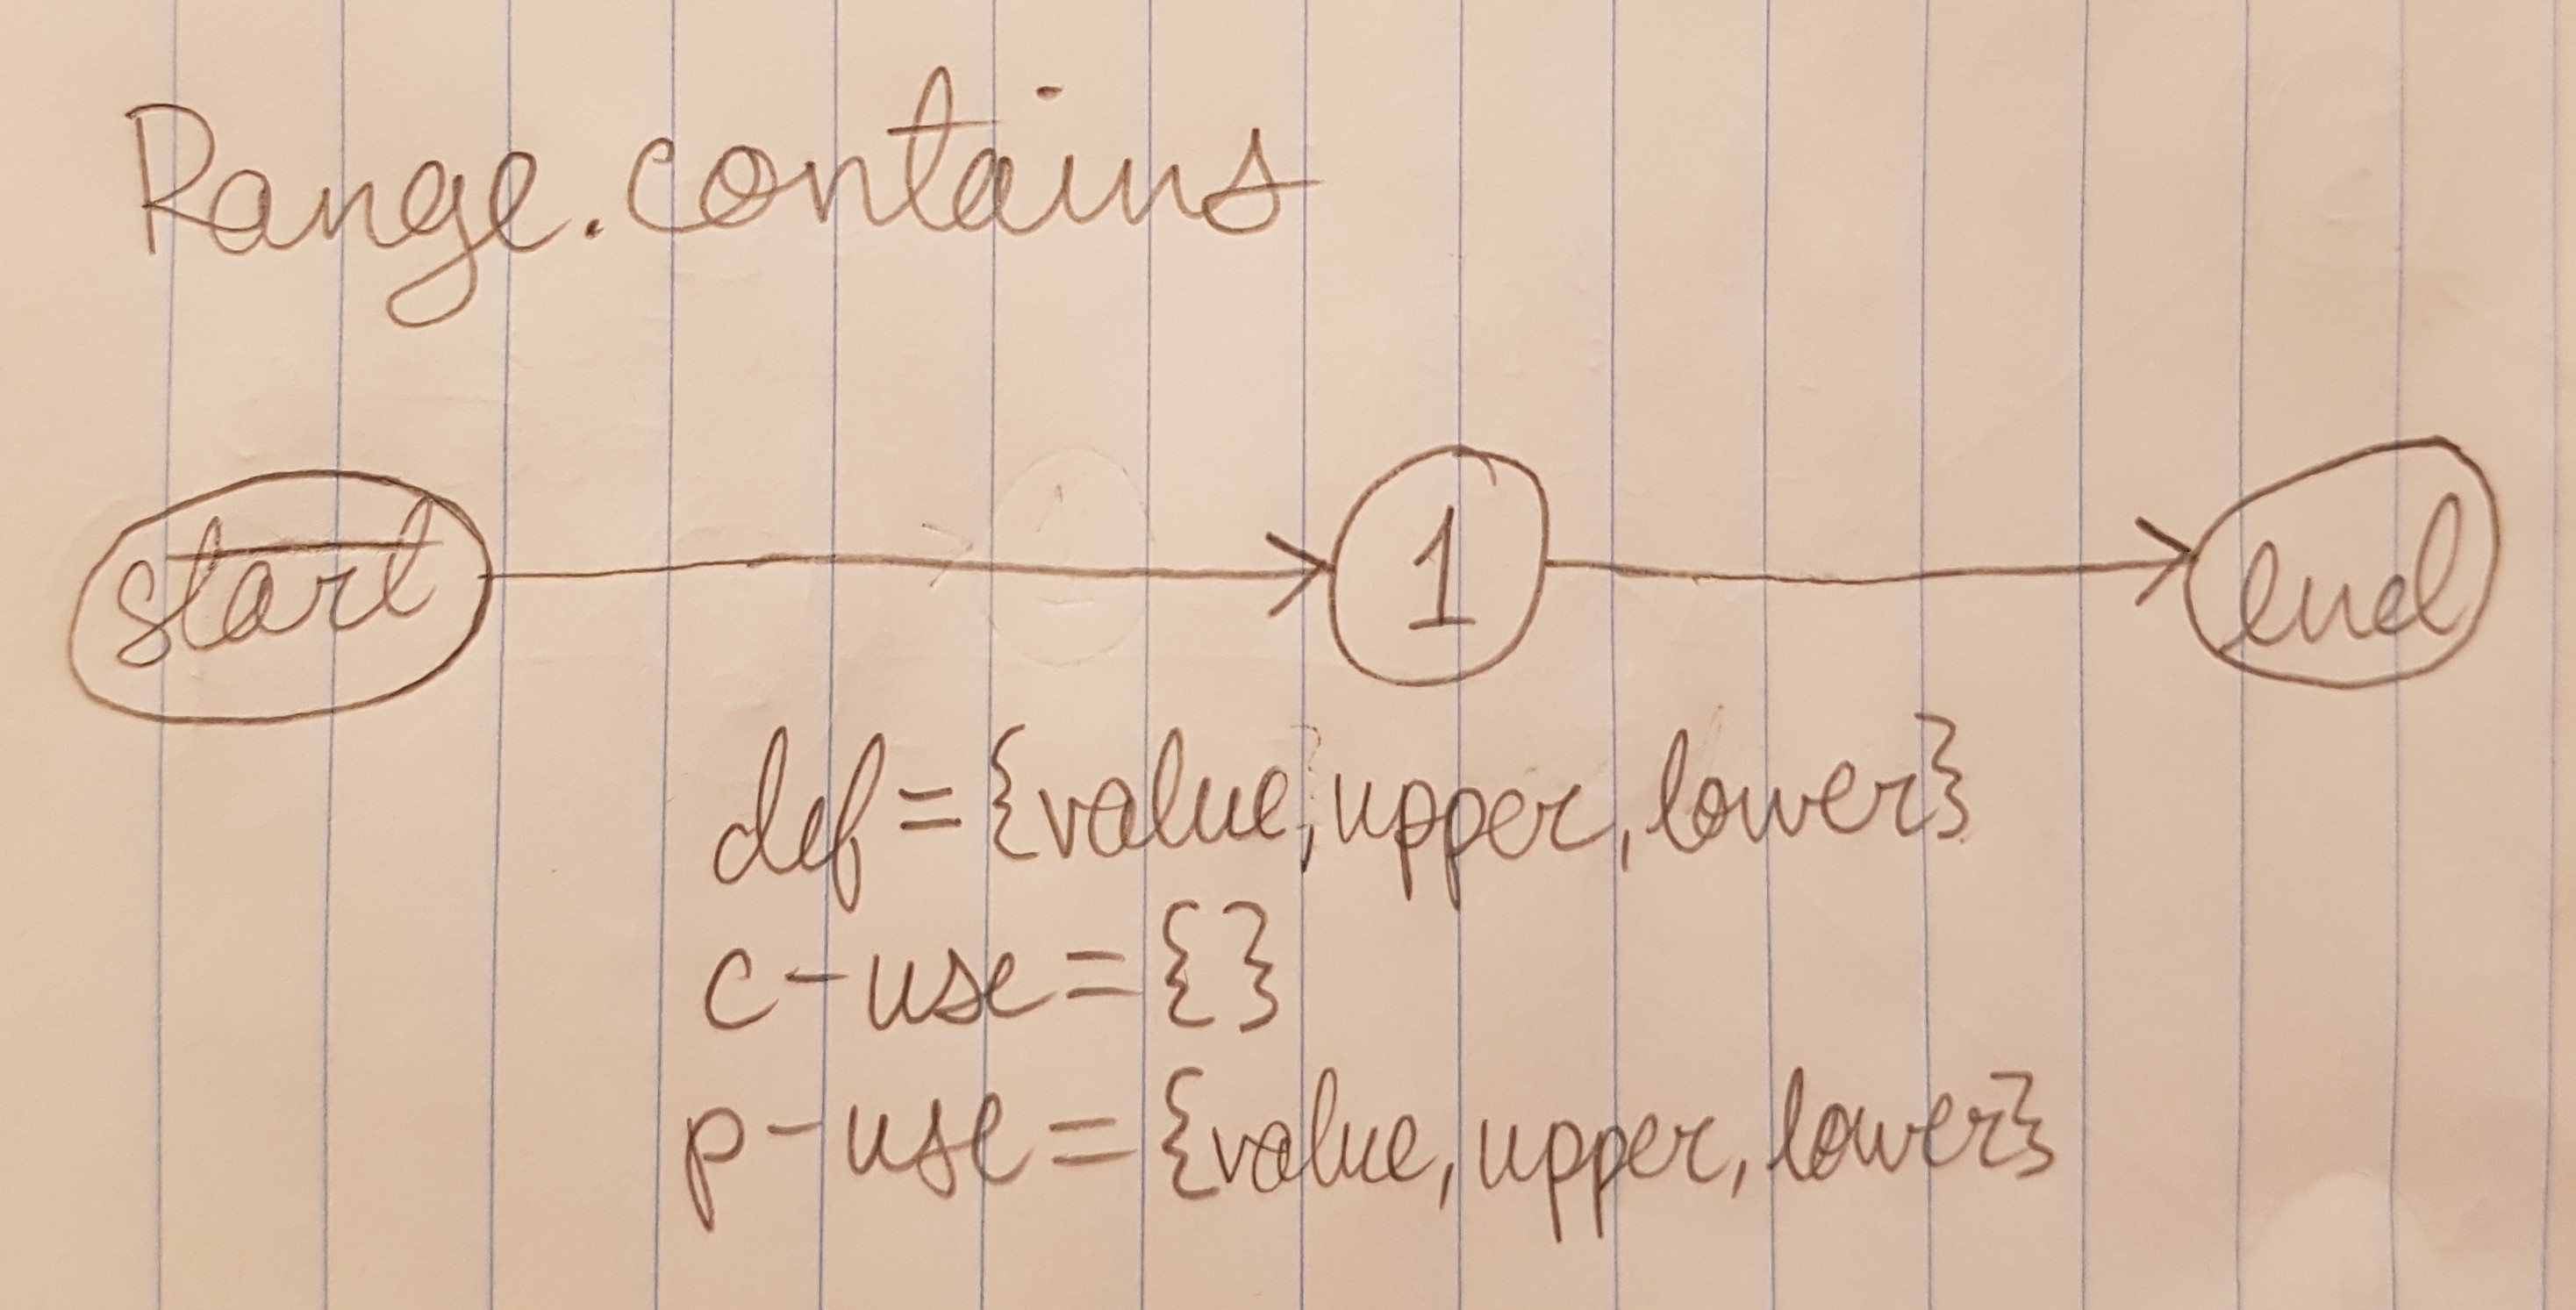 Range.contains
start 1 end
def = {value, upper, lower}
c-use = {}
p-use = {value, upper, lower}